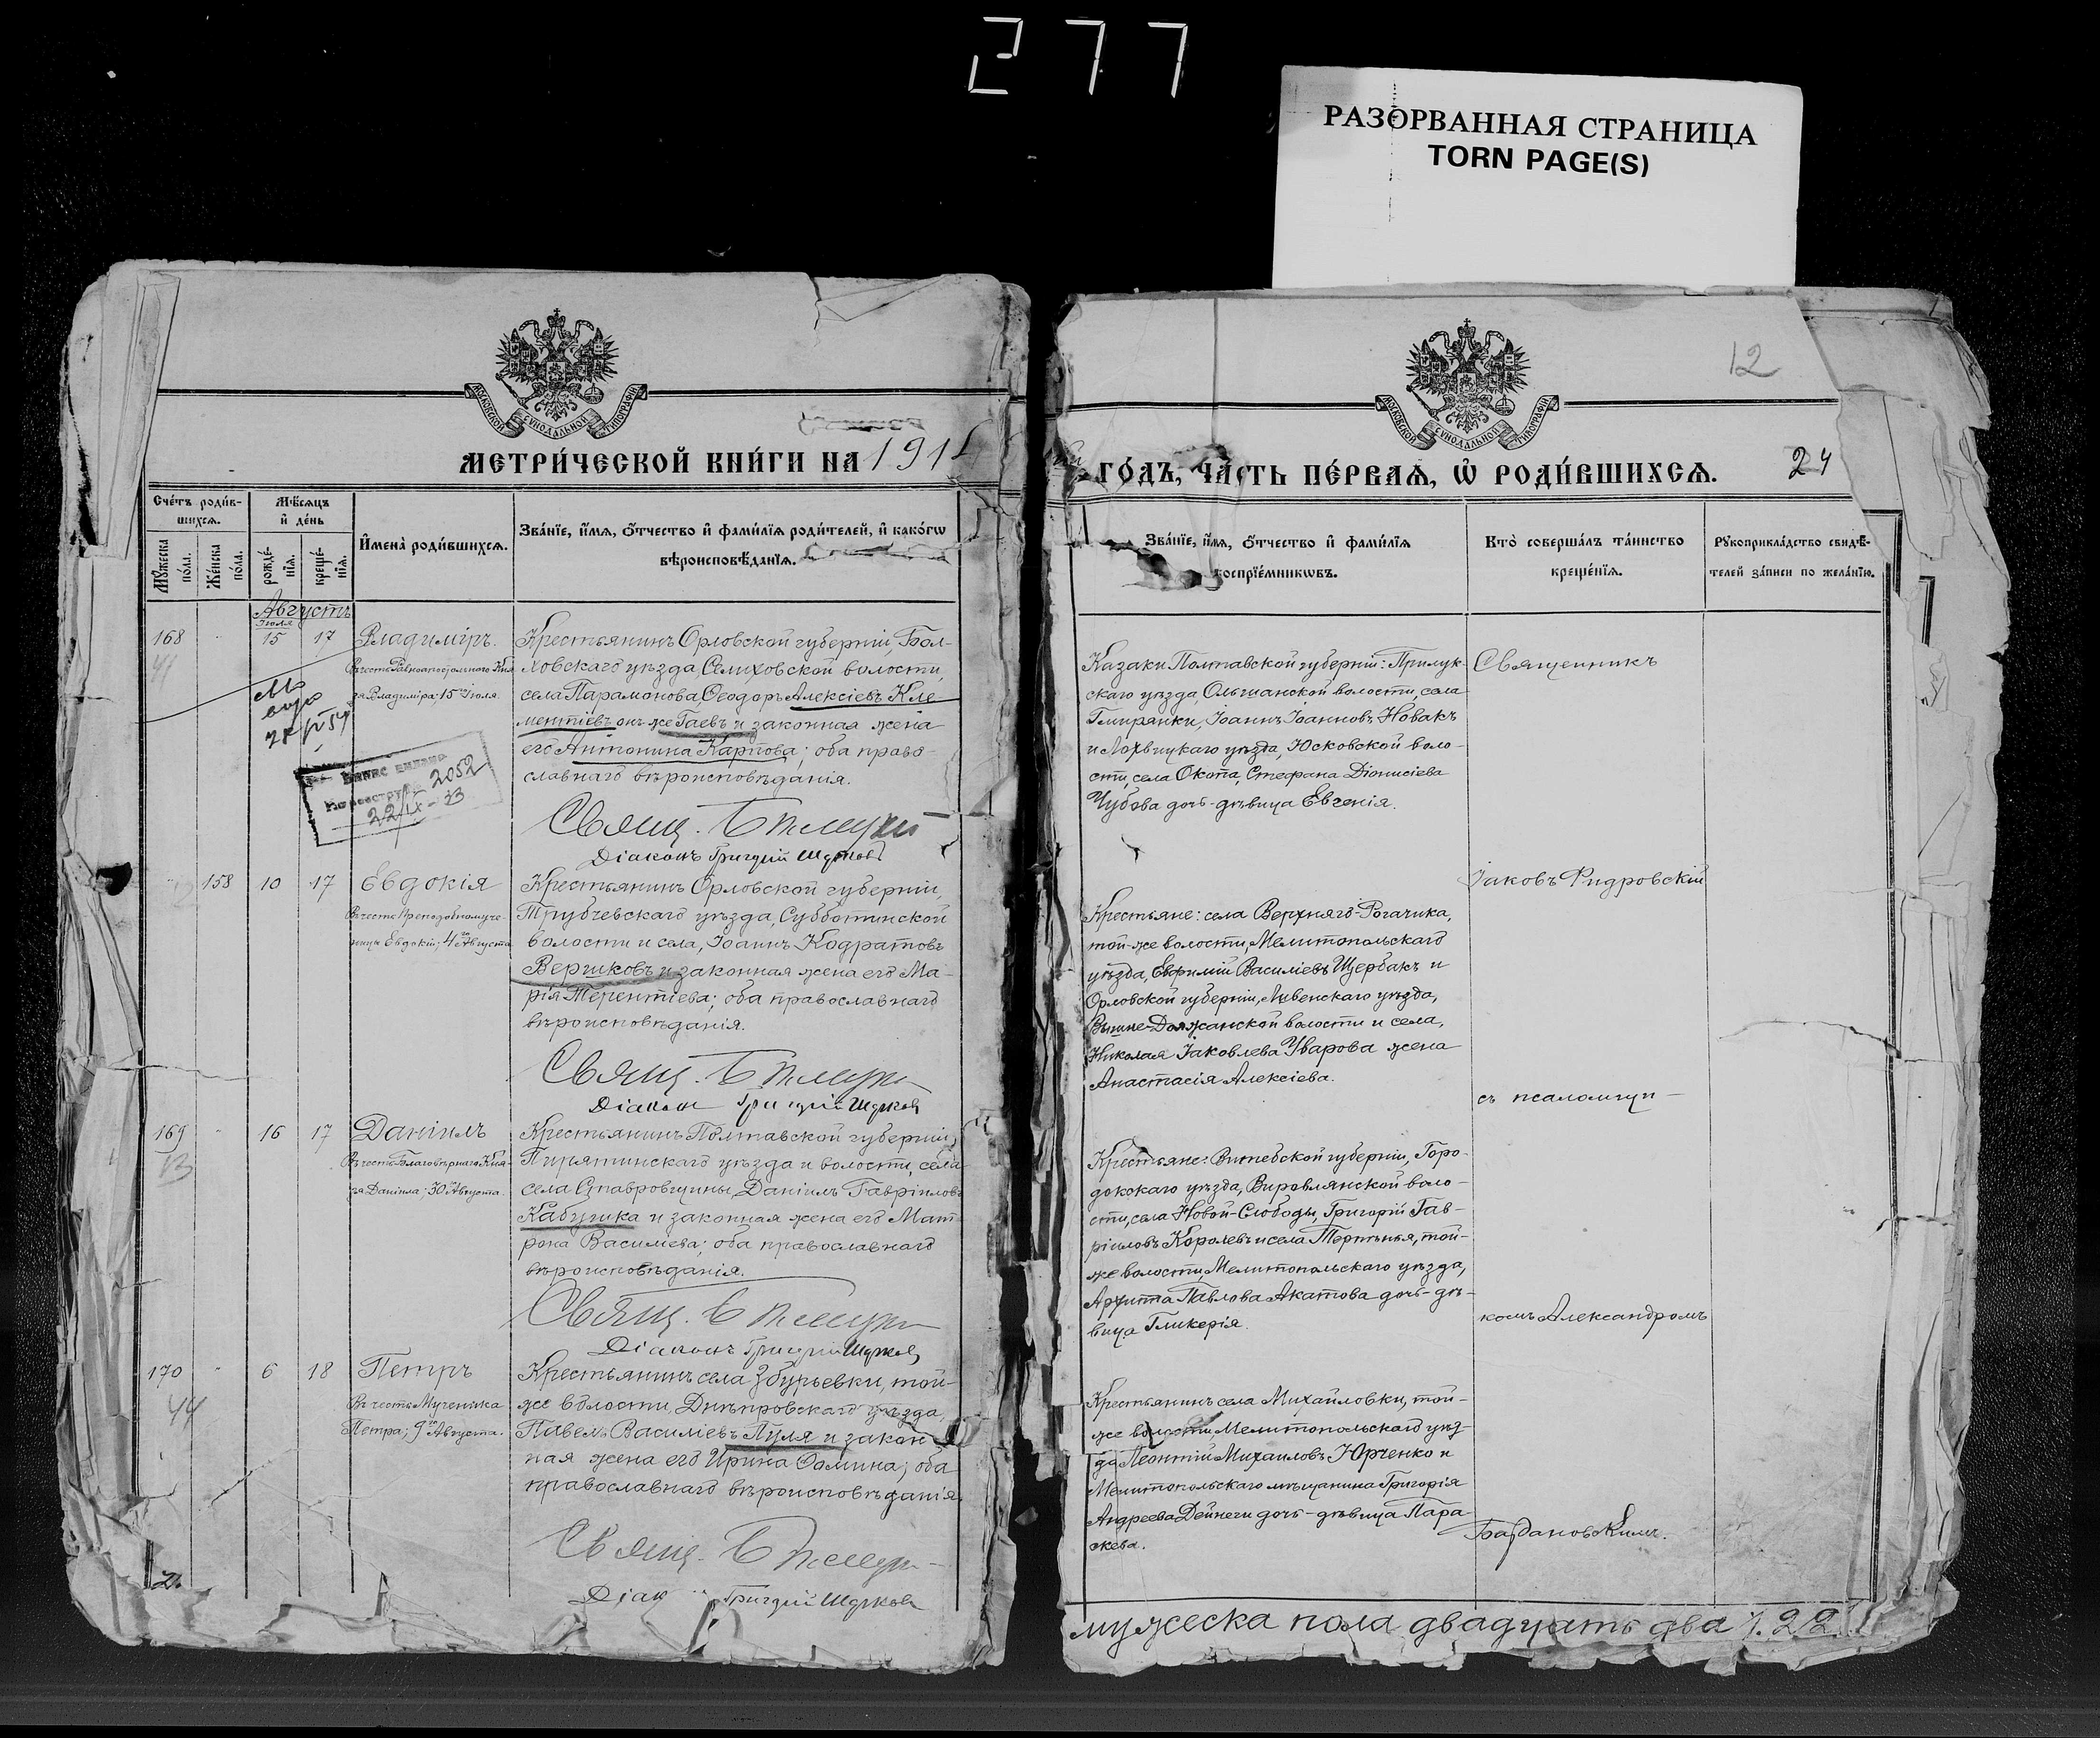 277
РАЗОРВАННАЯ СТРАНИЦА
TORN PAGE(S)
МОСКОВСКОЙ СѴНОДАЛЬНОЙ ТИПОГРАФІИ
МЕТРИ́ЧЕСКОЙ КНИ́ГИ НА 191
Сче́тъ роди́в-
шихсѧ.
Мѣ́сѧцъ
и҆ де́нь
Мꙋ́жеска
по́ла.
Же́нска
по́ла.
рожде́-
нїѧ.
креще́-
нїѧ.
И҆мена̀ роди́вшихсѧ.
Зва́нїе, и҆́мѧ, ѻ҆́тчество и҆ фами́лїѧ роди́телей, и҆ како́гѡ
вѣроисповѣ́данїѧ.
Августъ
Іюля
168 " 15 17 Владиміръ.
41
Въ честь Равноапостольного Кня
зя Владиміра; 15го Іюля
Крестьянинъ Орловской губерніи, Бол-
ховскаго уѣзда, Селиховской волости,
села Парамонова, Ѳеодоръ Алексіевъ Кле-
ментіевъ онъ же Гаевъ и законная жена
его Антонина Карпова; оба право-
славнаго вѣроисповѣданія.
2052
22/IX-33
Свящ.
Діаконъ Григорій
158 10 17 Евдокія
Въ честь Преподобномуче-
ницы Евдокіи; 4го Августа
Крестьянинъ Орловской губерніи,
Трубчевскаго уѣзда, Субботинской
волости и села, Іоаннъ Кодратовъ
Вершковъ и законная жена его Ма-
рія Терентіева; оба православнаго
вѣроисповѣданія.
Свящ.
Діаконъ Григорій
169 " 16 17 Даніилъ
43
Въ честь Благовѣрнаго Кня-
зя Даніила; 30го Августа.
Крестьянинъ Полтавской губерніи,
Пирятинскаго уѣзда и волости, села
села Ставровщины, Даніилъ Гавріиловъ
Кабушка и законная жена его Мат-
рона Василіева; оба православнаго
вѣроисповѣданія.
Свящ.
Діаконъ Григорій
170 " 6 18 Петръ
44
Въ честь Мученика
Петра; 9го Августа.
Крестьянинъ села Збурьевки, той-
же волости, Днѣпровскаго уѣзда,
Павелъ Василіевъ Пуля и закон
ная жена его Ирина Ѳомина; оба
православнаго вѣроисповѣданія.
Свящ.
Діак Григорій
12
МОСКОВСКОЙ СѴНОДАЛЬНОЙ ТИПОГРАФІИ
ГО́ДЪ, ЧА́СТЬ ПЕ́РВАѦ, Ѡ҆ РОДИ́ВШИХСѦ. 24
Зва́нїе, и҆́мѧ, ѻ҆́тчество и҆ фами́лїѧ
воспрїе́мникѡвъ.
Кто̀ соверша́лъ та́инство
креще́нїѧ.
Рꙋкоприкла́дство свидѣ́-
телей за́писи по жела́нїю.
Казаки Полтавской губерніи: Прилук-
скаго уѣзда, Ольшанской волости, села
Гмирянки, Іоаннъ Іоанновъ Новакъ
и Лохвицкаго уѣзда, Юсковской воло-
сти, села Окопа, Стефана Діонисіева
Чубова дочь-дѣвица Евгенія.
Священникъ
Іаковъ Фидровскій
Крестьяне: села Верхняго-Рогачика,
той-же волости, Мелитопольскаго
уѣзда, Евфимій Василіевъ Щербакъ и
Орловской губерніи, Ливенскаго уѣзда,
Вышне-Должанской волости и села,
Николая Іаковлева Уварова жена
Анастасія Алексіева.
съ псаломщи-
Крестьяне: Витебской губерніи, Горо-
докскаго уѣзда, Вировлянской воло-
сти, села Новой-Слободы, Григорій Гав-
ріиловъ Королевъ и села Терпѣнья, той-
же волости, Мелитопольскаго уѣзда,
Архиппа Павлова Акатова дочь-дѣ-
вица Гликерія.
комъ Александромъ
Крестьянинъ села Михайловки, той-
же волости, Мелитопольскаго уѣз-
да Леонтій Михаиловъ Юрченко и
Мелитопольскаго мѣщанина Григорія
Андреева Дейнеги дочь-дѣвица Пара
скева.
Баздановскимъ.
мужеска пола двадцать два /. 22.